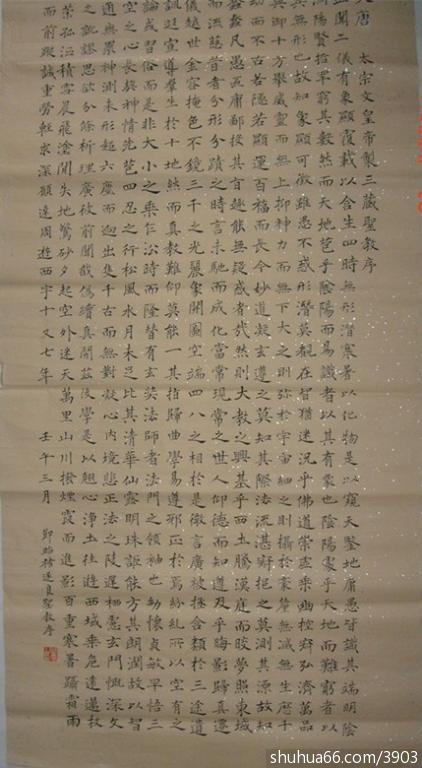 唐 太宗文皇帝製三藏聖教序
聞二儀有象顯覆載以含生四時無形潛寒暑以化物是以窺天鑒地庸愚皆識其端明陰
洞陽賢哲罕窮其數然而天地苞乎陰陽而易識者以其有象也陰陽處乎天地而難窮者以
其無形也故知象顯可徵雖愚不惑形潛莫覩在智猶迷況乎佛道崇虛乘幽控寂弘濟萬品
典御十方舉威靈而無上抑神力而無下大之則弥於宇宙細之則攝於豪釐無滅無生歷千
劫而不古若隱若顯運百福而長今妙道凝玄遵之莫知其際法流湛寂挹之莫測其源故知
蠢凡愚區區庸鄙投其旨趣能無疑惑者哉然則大教之興基乎西土騰漢庭而皎夢照東域
而流慈昔者分形分跡之時言未馳而成化當常現常之世人仰德而知遵及乎晦影歸真遷
儀越世金容掩色不鏡三千之光麗象開圖空端四八之相於是微言廣被拯含類於三途遺
訓遐宣導羣生於十地然而真教難仰莫能一其指歸曲學易遵邪正於焉紛糺所以空有之
論或習俗而是非大小之乘乍沿時而隆替有玄奘法師者法門之領袖也幼懷貞敏早悟三
空之心長契神情先苞四忍之行松風水月未足比其清華仙露明珠詎能方其朗潤故以智
通無累神測未形超六塵而迥出隻千古而無對凝心內境悲正法之陵遲栖慮玄門慨深文
之訛謬思欲分條析理廣彼前聞截偽續真開茲後學是以翹心淨土往遊西域乘危遠邁杖
策孤征積雪晨飛途間失地驚砂夕起空外迷天萬里山川撥煙霞而進影百重寒暑躡霜雨
而前蹤誠重勞輕求深願達周遊西宇十又七年 壬午三月
遂良聖教序
shuhua66.com/3903